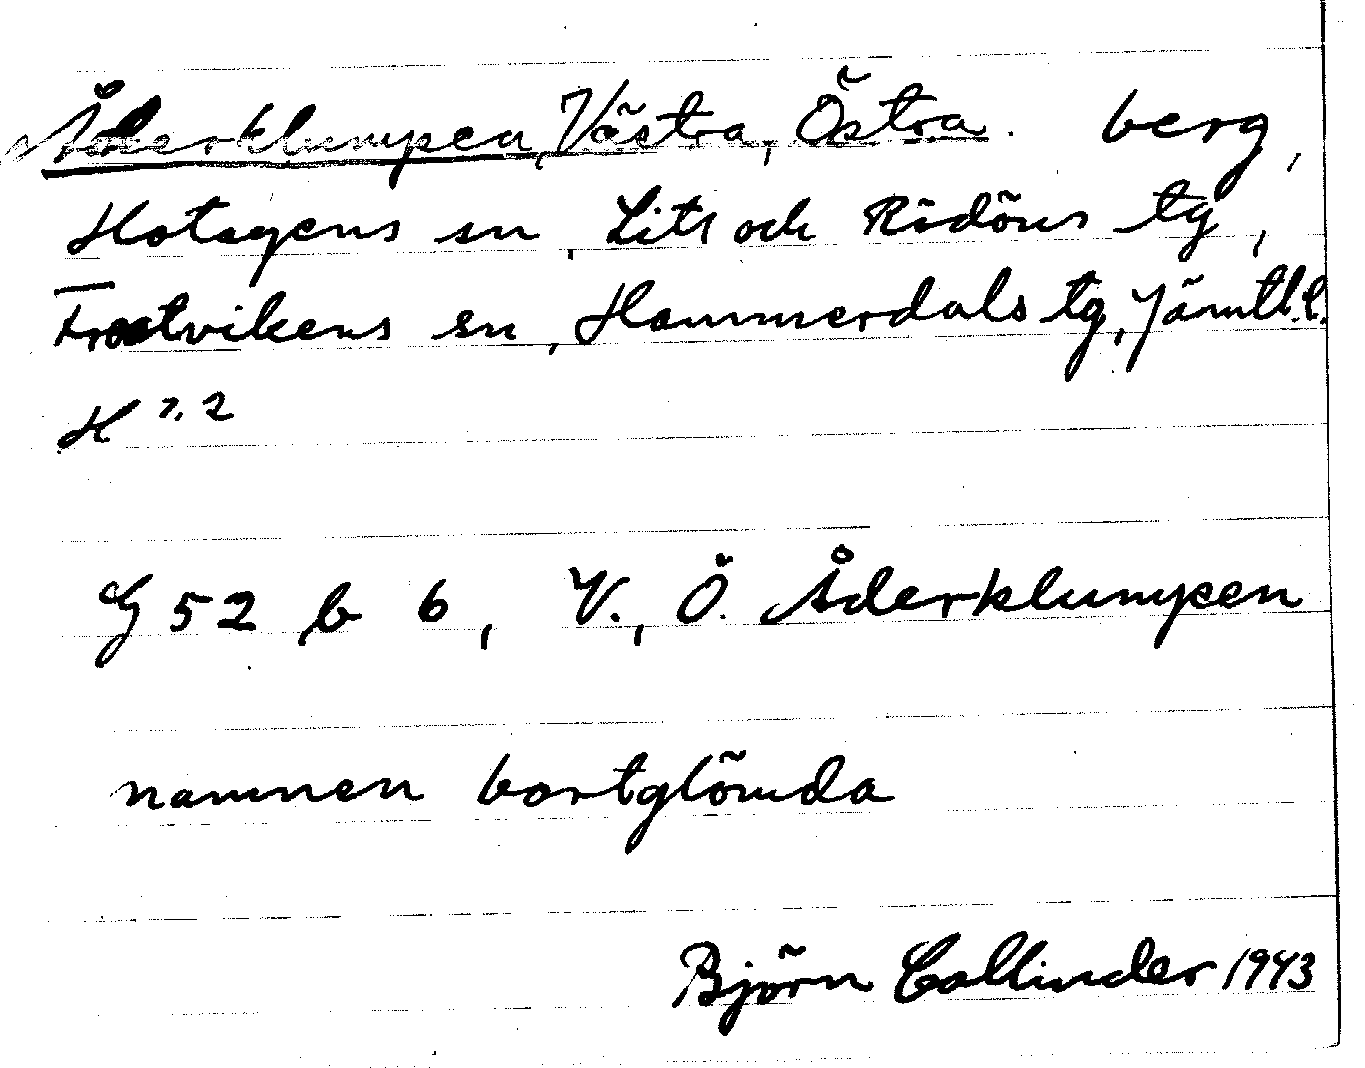 Åderklumpen, Västra, Östra. berg,
Hotagens sn, Lits och Rödöns tg,
Frostvikens sn, Hammerdals tg, Jämtl. l.
H 7. 2
G 52 b 6, V., Ö. Åderklumpen
namnen bortglömda
Björn Collinder 1943